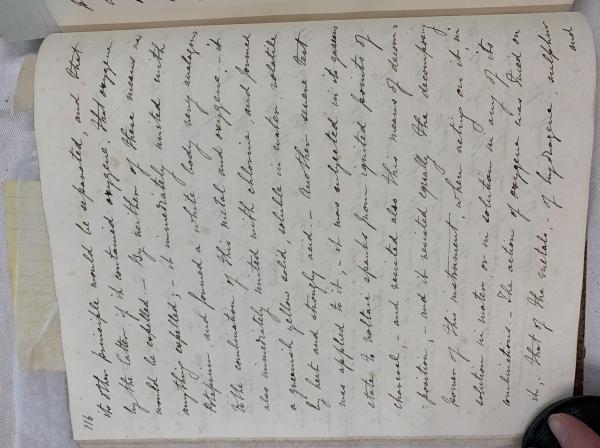 116
its other principle would be separated, and that
by the latter if it contained oxygene, that oxygene
would be expelled. – By neither of these means was
anything expelled; – it immediately united with
Potassium and formed a white body very analogous
to the combination of this metal and oxygene. – it
also immediately united with chlorine and formed
a greenish yellow solid, soluble in water, volatile
by heat and strongly acid. – Another severe test
was applied to it; – it was subjected in its gaseous
state to voltaic sparks from ignited points of
charcoal – and resisted also this means of decom
-position, and it resisted equally the decomposing
power of this instrument, when acting on it in
solution in water, or in solution in any of its
combinations. – The action of oxygene was tried on
it; that of the metals, – of hydrogene, sulphur
and